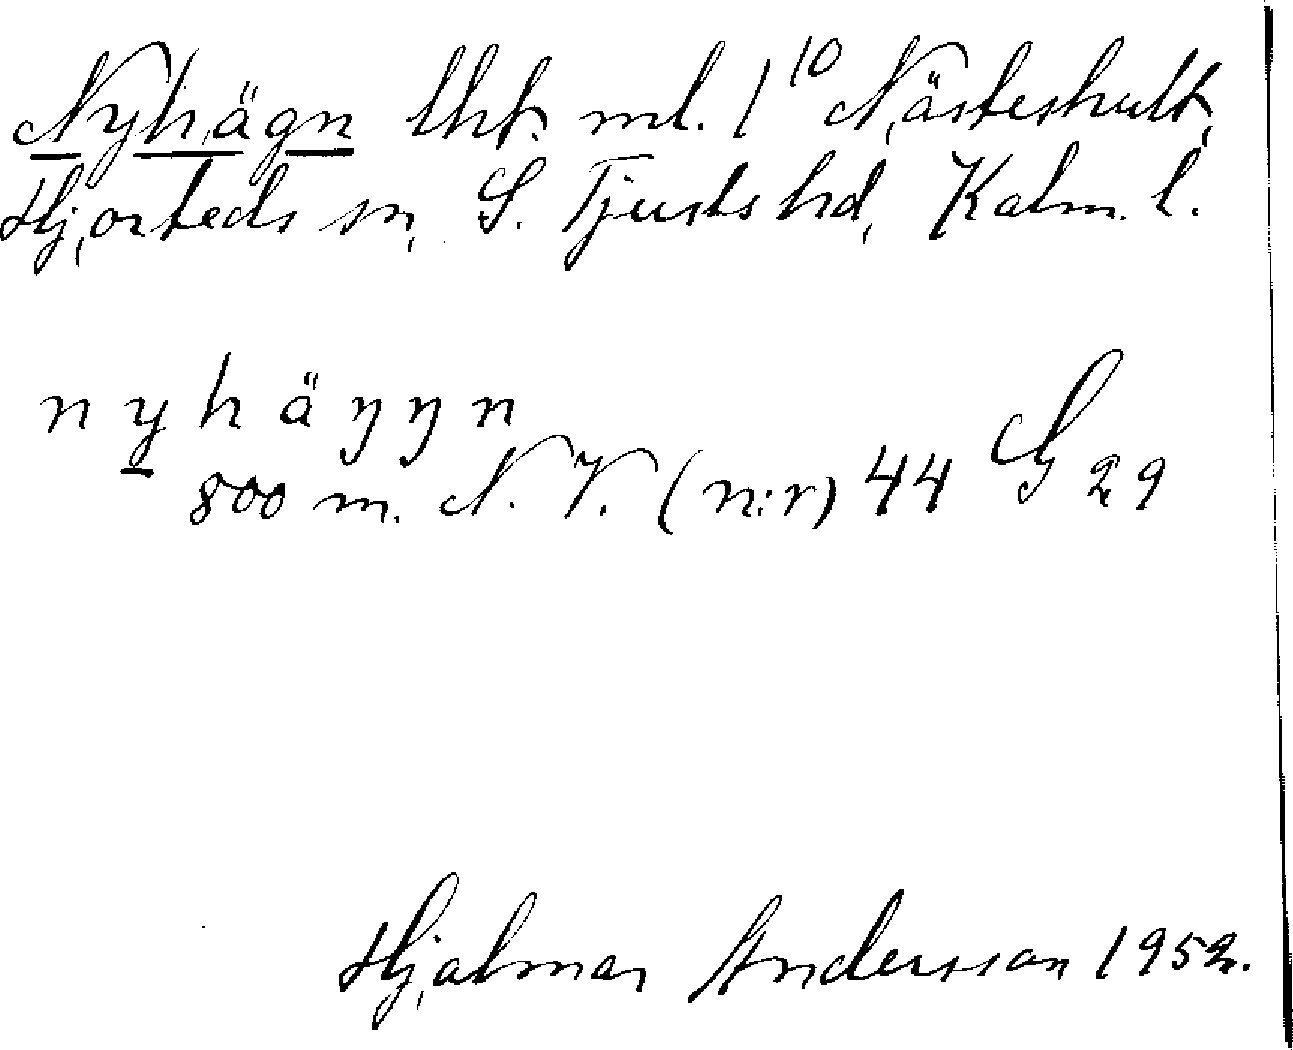 Nyhägn lht. ml. 1¹⁰ Nästeshult,
Hjorteds sn, S. Tjusts hd, Kalm. l.
nyhäŋŋn
800 m. N. V. (n:r) 44 G 29
Hjalmar Andersson 1952.